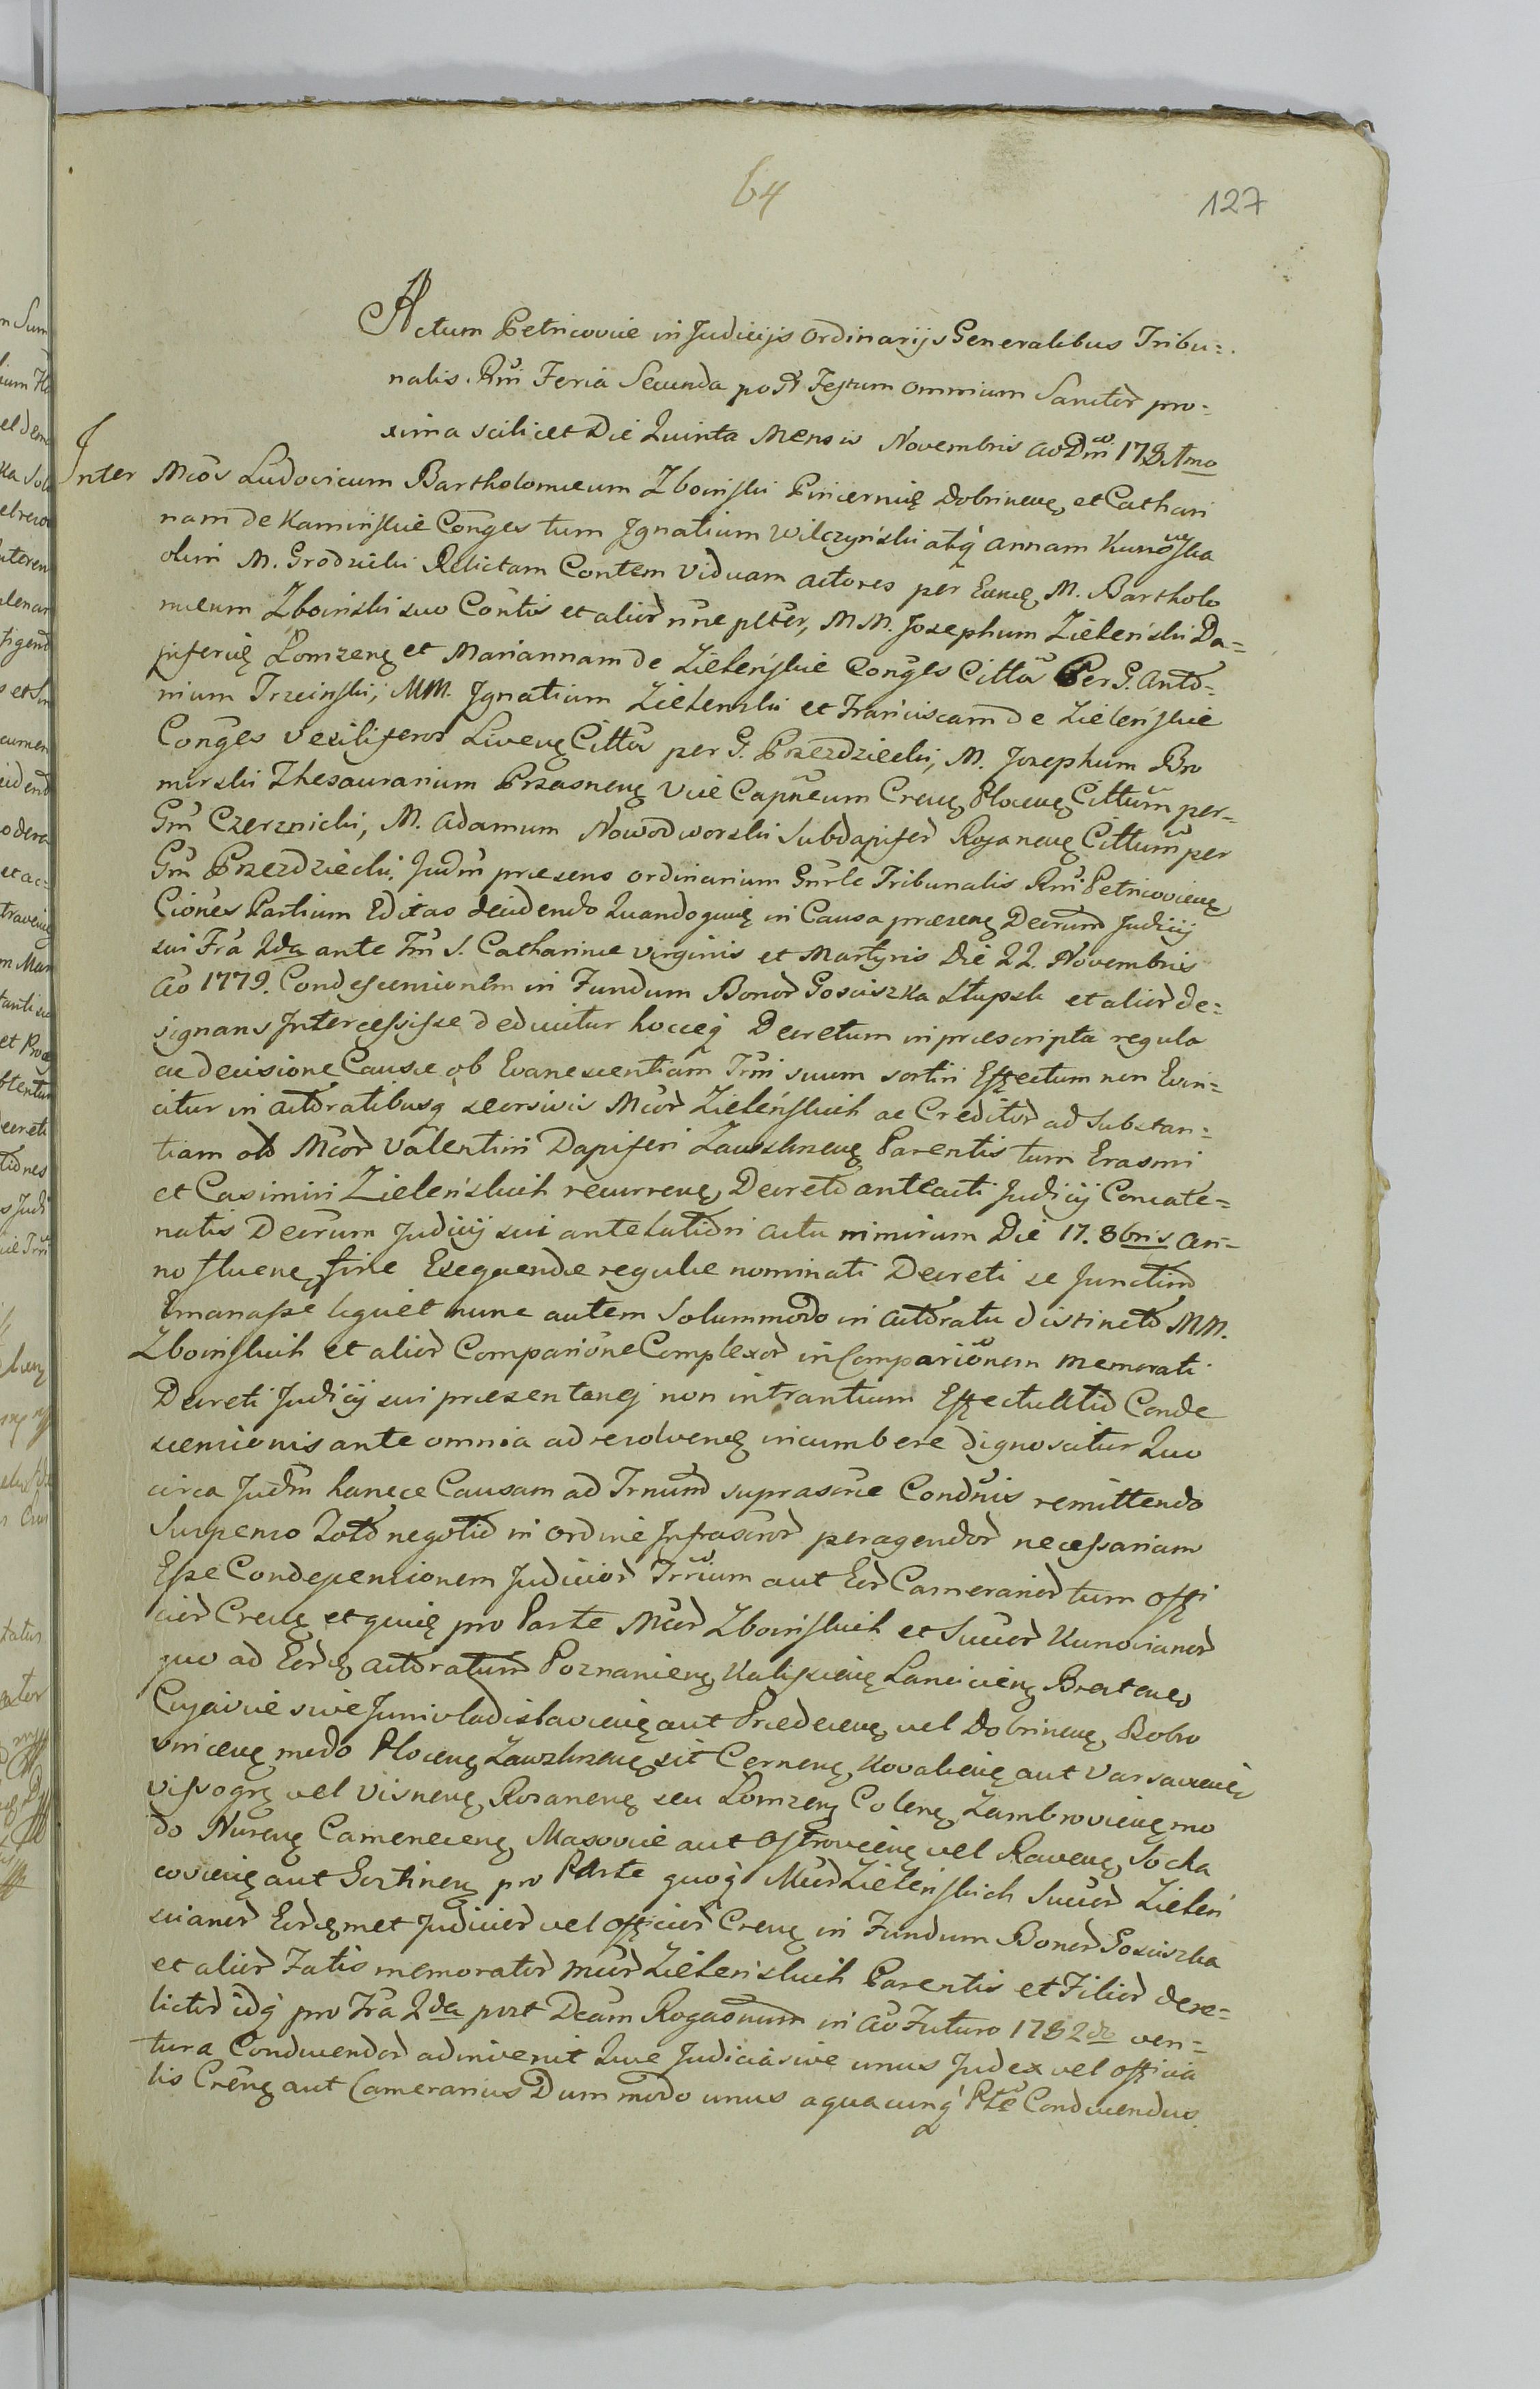 64
127
Actum Petricoviæ in Judicijs Ordinarijs Generalibus Tribu=
nalis Rni Feria Secunda post Festum Omnium Sanctor pro=
xima scilicet Die Quinta Mensis Novembris Ao Dni 1781mo
Inter Mcos Ludovicum Bartholomeum Zboinski Pincernię Dobrinenę et Cathari
nam de Kaminskie Conges tum Ignatium Wilczyński atq Annam Kunowska
olim M. Grodzicki Relictam Contem Viduam Actores per Eundę M. Bartholo
meum Zboinski suo Contis et alior nne ptter, M M. Josephum Zieleński Da=
piferię Łomzenę et Mariannam de Zieleńskie Conges Cittos Per G. Anto=
nium Trzcinski, MM. Ignatium Zielenski et Franciscam de Zieleńskie
Conges Vexiliferor Livenę Cittos per G. Przezdziecki, M. Josephum Bro
mirski Thesaurarium Przasnenę Vice Capneum Crenę Plocenę Cittum per=
Gm Czerznicki, M. Adamum Nowodworski Subdapifer Rozanenę Cittum per
Gm Przezdziecki. Judm præsens ordinarium Gnrle Tribunalis Rni Petricovienę
Ciones Partium Editas decidendo Quandoquię in Causa præsenę Decrum Judicij
sui Fra 2da ante Fm S. Catharinæ Virginis et Martyris Die 22. Novembris
Ao 1779. Condescensionlm in Fundum Bonor Gosciszka Słupsk et alior de=
signans Intercessisse deducitur hocceq Decretum in præscripta regula
ac decisione Causæ ob Evanescentiam Trni suum sortiri Effectum non Evin=
citur in actoratibusq seorsivis Mcor Zieleńskich ac Creditor ad Substan=
tiam olo Mcor Valentini Dapiferi Zawskrzenę Parentis tum Erasmi
et Casimiri Zieleńskich recurrenę Decreto anteacti Judicij Concate=
natis Decrum Judicij sui antelationi actu nimirum Die 17. 8bris An=
no fluenę fine Exequendæ regulæ nominati Decreti se Junctim
Emanasse liquet nunc autem Solummodo in actoratu distincto MM.
Zboinskich et alior Comparione Complexor in Comparionem memorati
Decreti Judicij sui præsentanej non intrantium Effectuatio Conde
scensionis ante omnia ad resolvenę incumbere dignoscitur Quo
circa Judm hancce Causam ad Trnum suprascræ Condnis remittendo
Suspenso Toto negotio in ordine Infrascror peragendor necessariam
Esse Condescensionem Judicior Trrium aut Eor Camerarior tum offi
cior Crenę et quię pro Parte Mcor Zboinskich et Succor Kunovianor
quo ad Eordę actoratum Poznanienę Kalisienę Lancicienę Brestenes
Cujaviæ sive Junivladislavienę aut Prædecenę vel Dobrinenę, Bobro
vnicenę modo Plocenę Zawskrzenę sit Cernenę Kovalienę aut Varsavienę
Vissogrę vel Visnenę, Rozanenę seu Łomzenę Colenę Zambrovienę mo
do Nurenę Camenecenę Masoviæ aut Ostrovienę vel Ravenę, Socha
covienę aut Gostinenę pro Parte quoq Mcor Zieleńskich Succor Zieleń
scianor Eordęmet Judicior vel officior Crenę in Fundum Bonor Gosciszka
et alior Fatis memorator Mcor Zieleńskich Parentis et Filior dere=
lictor idq pro Fra 2da post Dcam Rogaonum in Ao Futuro 1782do ven=
tura Conducendor adinvenit Quæ Judicia sive unus Judex vel officia
lis Crenę aut Camerarius Dummodo unus aquacunq Pte Conducendus